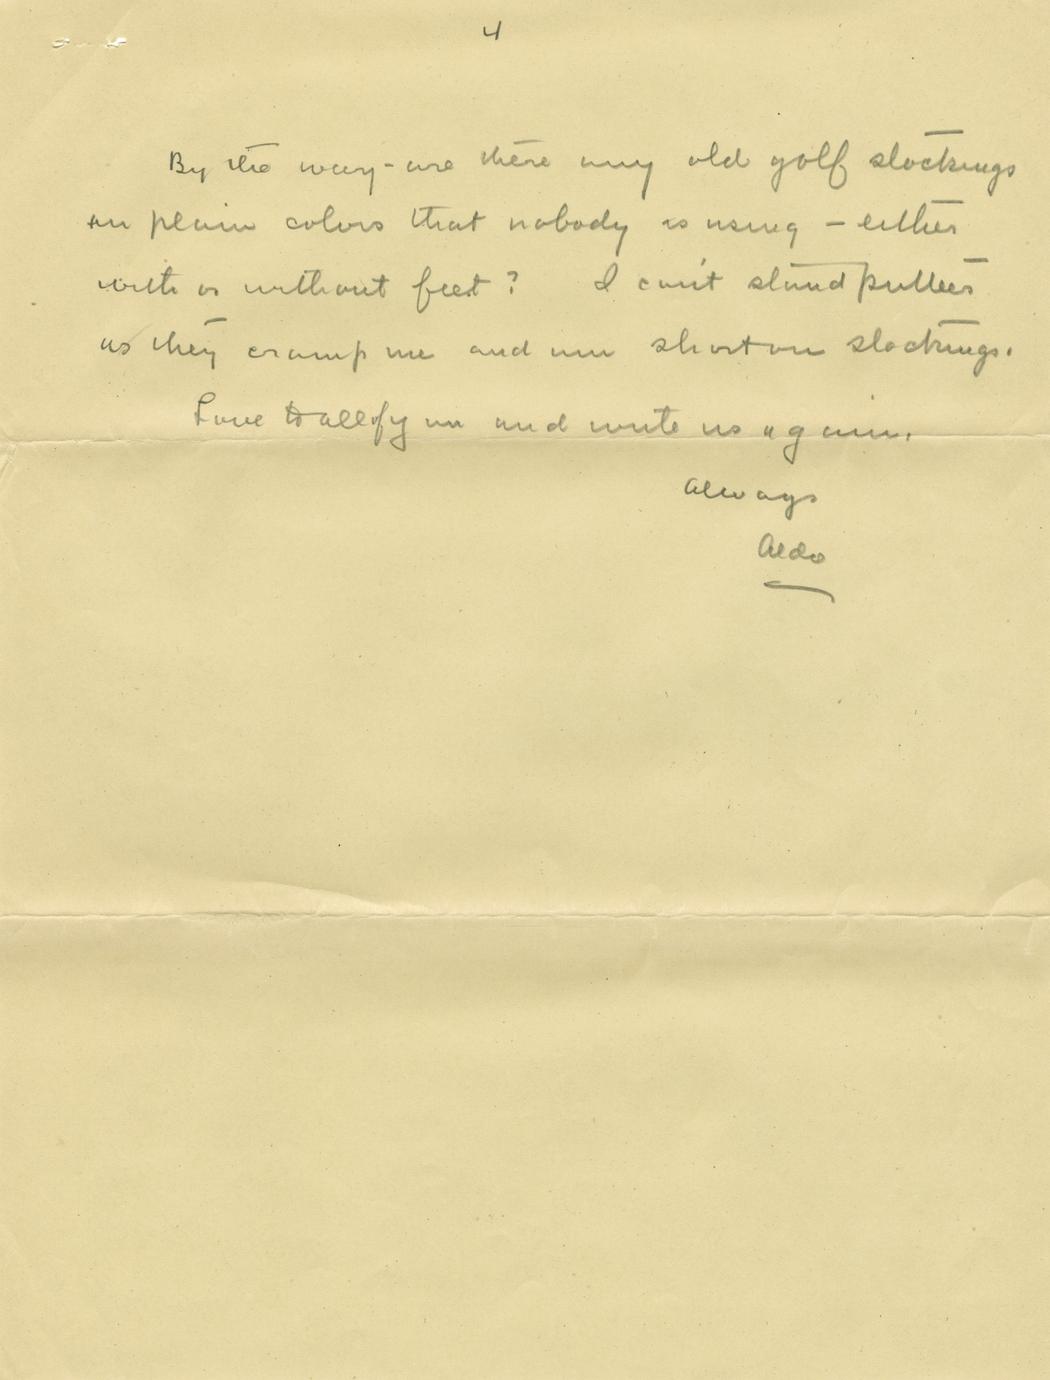 4
By the way - are there any old golf stockings
in plain colors that nobody is using - either
with or without feet? I can't stand puttees
as they cramp me and am short on stockings.
Love to all of you and write us again.
Always
Aldo